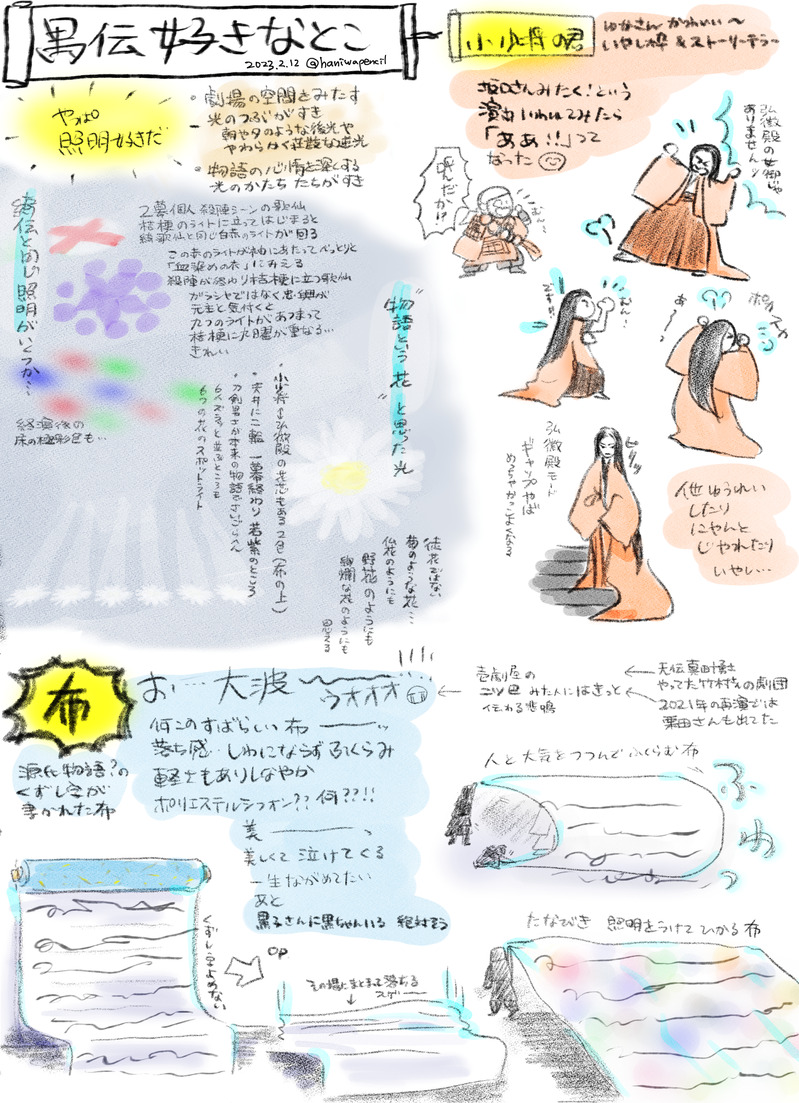 禺伝 好きなとこ
2023.2.12 @haniwapencil
やっぱ
照明好きだ
・劇場の空間をみたす
光のつぶがすき
朝や夕のような後光や
やわらかく荘厳な逆光
・物語の心情を深くする
光のかたち たちがすき
綺伝と同じ照明がいくつか…
2幕個人殺陣シーンの歌仙
桔梗のライトに立ってはじまると
綺歌仙と同じ白赤のライトが回る
この赤のライトが袖にあたってべっとりと
「血染めの衣」にみえる
殺陣が終わり桔梗に立つ歌仙
ガラシャではなく忠興が
元主と気付くと
たつのライトがあつまって
桔梗に火曜が重なる…
きれい
経演後の
床の極彩色も…
"物語という 花" と思った光
・小少将⇔弘徽殿の花芯もある2色(布の上)
・天井に二輪 一幕終わり 若紫のところ
・刀剣男士が本来の物語で
6人ズラっと並ぶところも
6つの花のスポットライト
徒花ではない
菊のような花…
仏花のようにも
野花のようにも
絢爛な花のようにも
思える
小少将の君
ゆなさん かわいい〜
いやし枠 &ストーリーテラー
坂口さんみたく!という
演出いわれてみたら
「ああ!!」って
なった
弘徽殿の女御じゃ
ありません!!
呼んだか!?
むん!
ですっ!!
あ〜
弘徽殿モード
ギャップやば
めっちゃかっこよくなる
他 ゆうれい
したり
にゃんと
じゃれたり
いやし…
布
源氏物語?の
くずし字が
書かれた布
お…大波〜〜
ウオオオ
何このすばらしい布――ッ
落ち感…しわにならず ふくらみ
軽さもありしなやか
ポリエステルシフォン??何??!!
美――――
美しくて 泣けてくる
一生ながめてたい
あと
黒子さんに黒ちゃんいる 絶対そう
壱劇屋の
二ツ巴 みた人にはきっと
伝わる悲鳴
天伝真田信之
やってた竹村さんの劇団
2021年の再演では
栗田さんも出てた
人と大気をつつんでふくらむ布
ふ わ っ
くずし字よめない
OP
その場にまとまって落ちる
スゲー
たなびき 照明をうけて ひかる 布